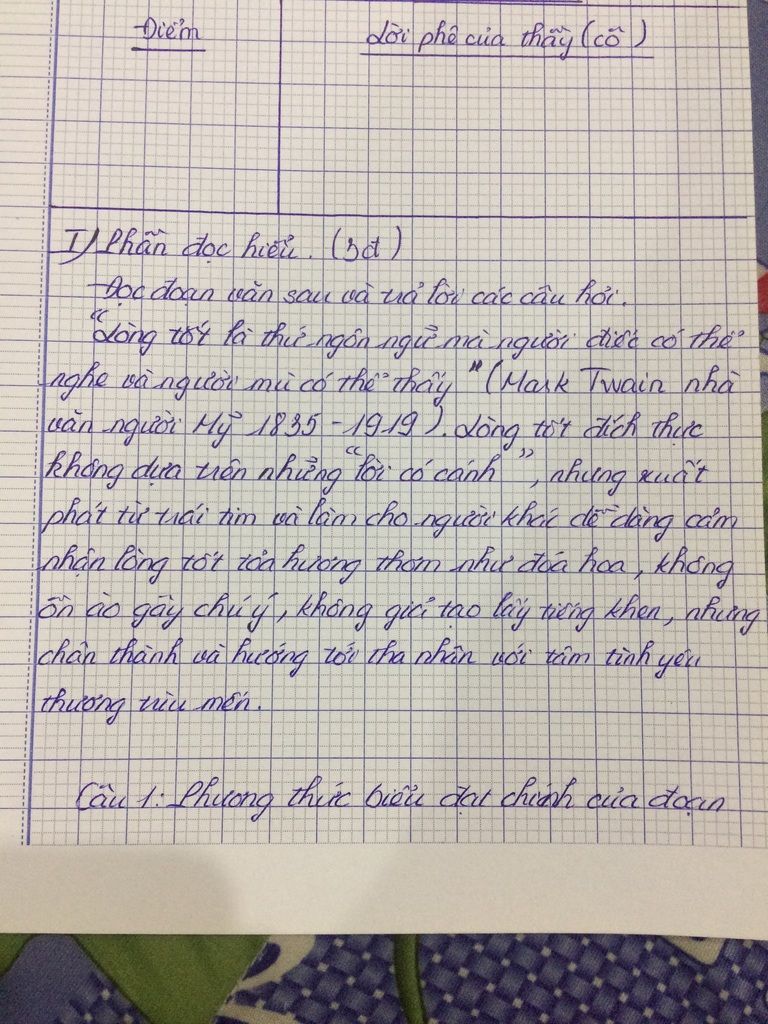 Điểm
Lời phê của thầy (cô)
I) Phần đọc hiểu. (3đ)
Đọc đoạn văn sau và trả lời các câu hỏi.
"Lòng tốt là thứ ngôn ngữ mà người điếc có thể
nghe và người mù có thể thấy" (Mark Twain nhà
văn người Mỹ 1835-1919). Lòng tốt đích thực
không dựa trên những "lời có cánh", nhưng xuất
phát từ trái tim và làm cho người khác dễ dàng cảm
nhận lòng tốt tỏa hương thơm như đoá hoa, không
ồn ào gây chú ý, không giả tạo lấy tiếng khen, nhưng
chân thành và hướng tới tha nhân với tâm tình yêu
thương trìu mến.
Câu 1: Phương thức biểu đạt chính của đoạn